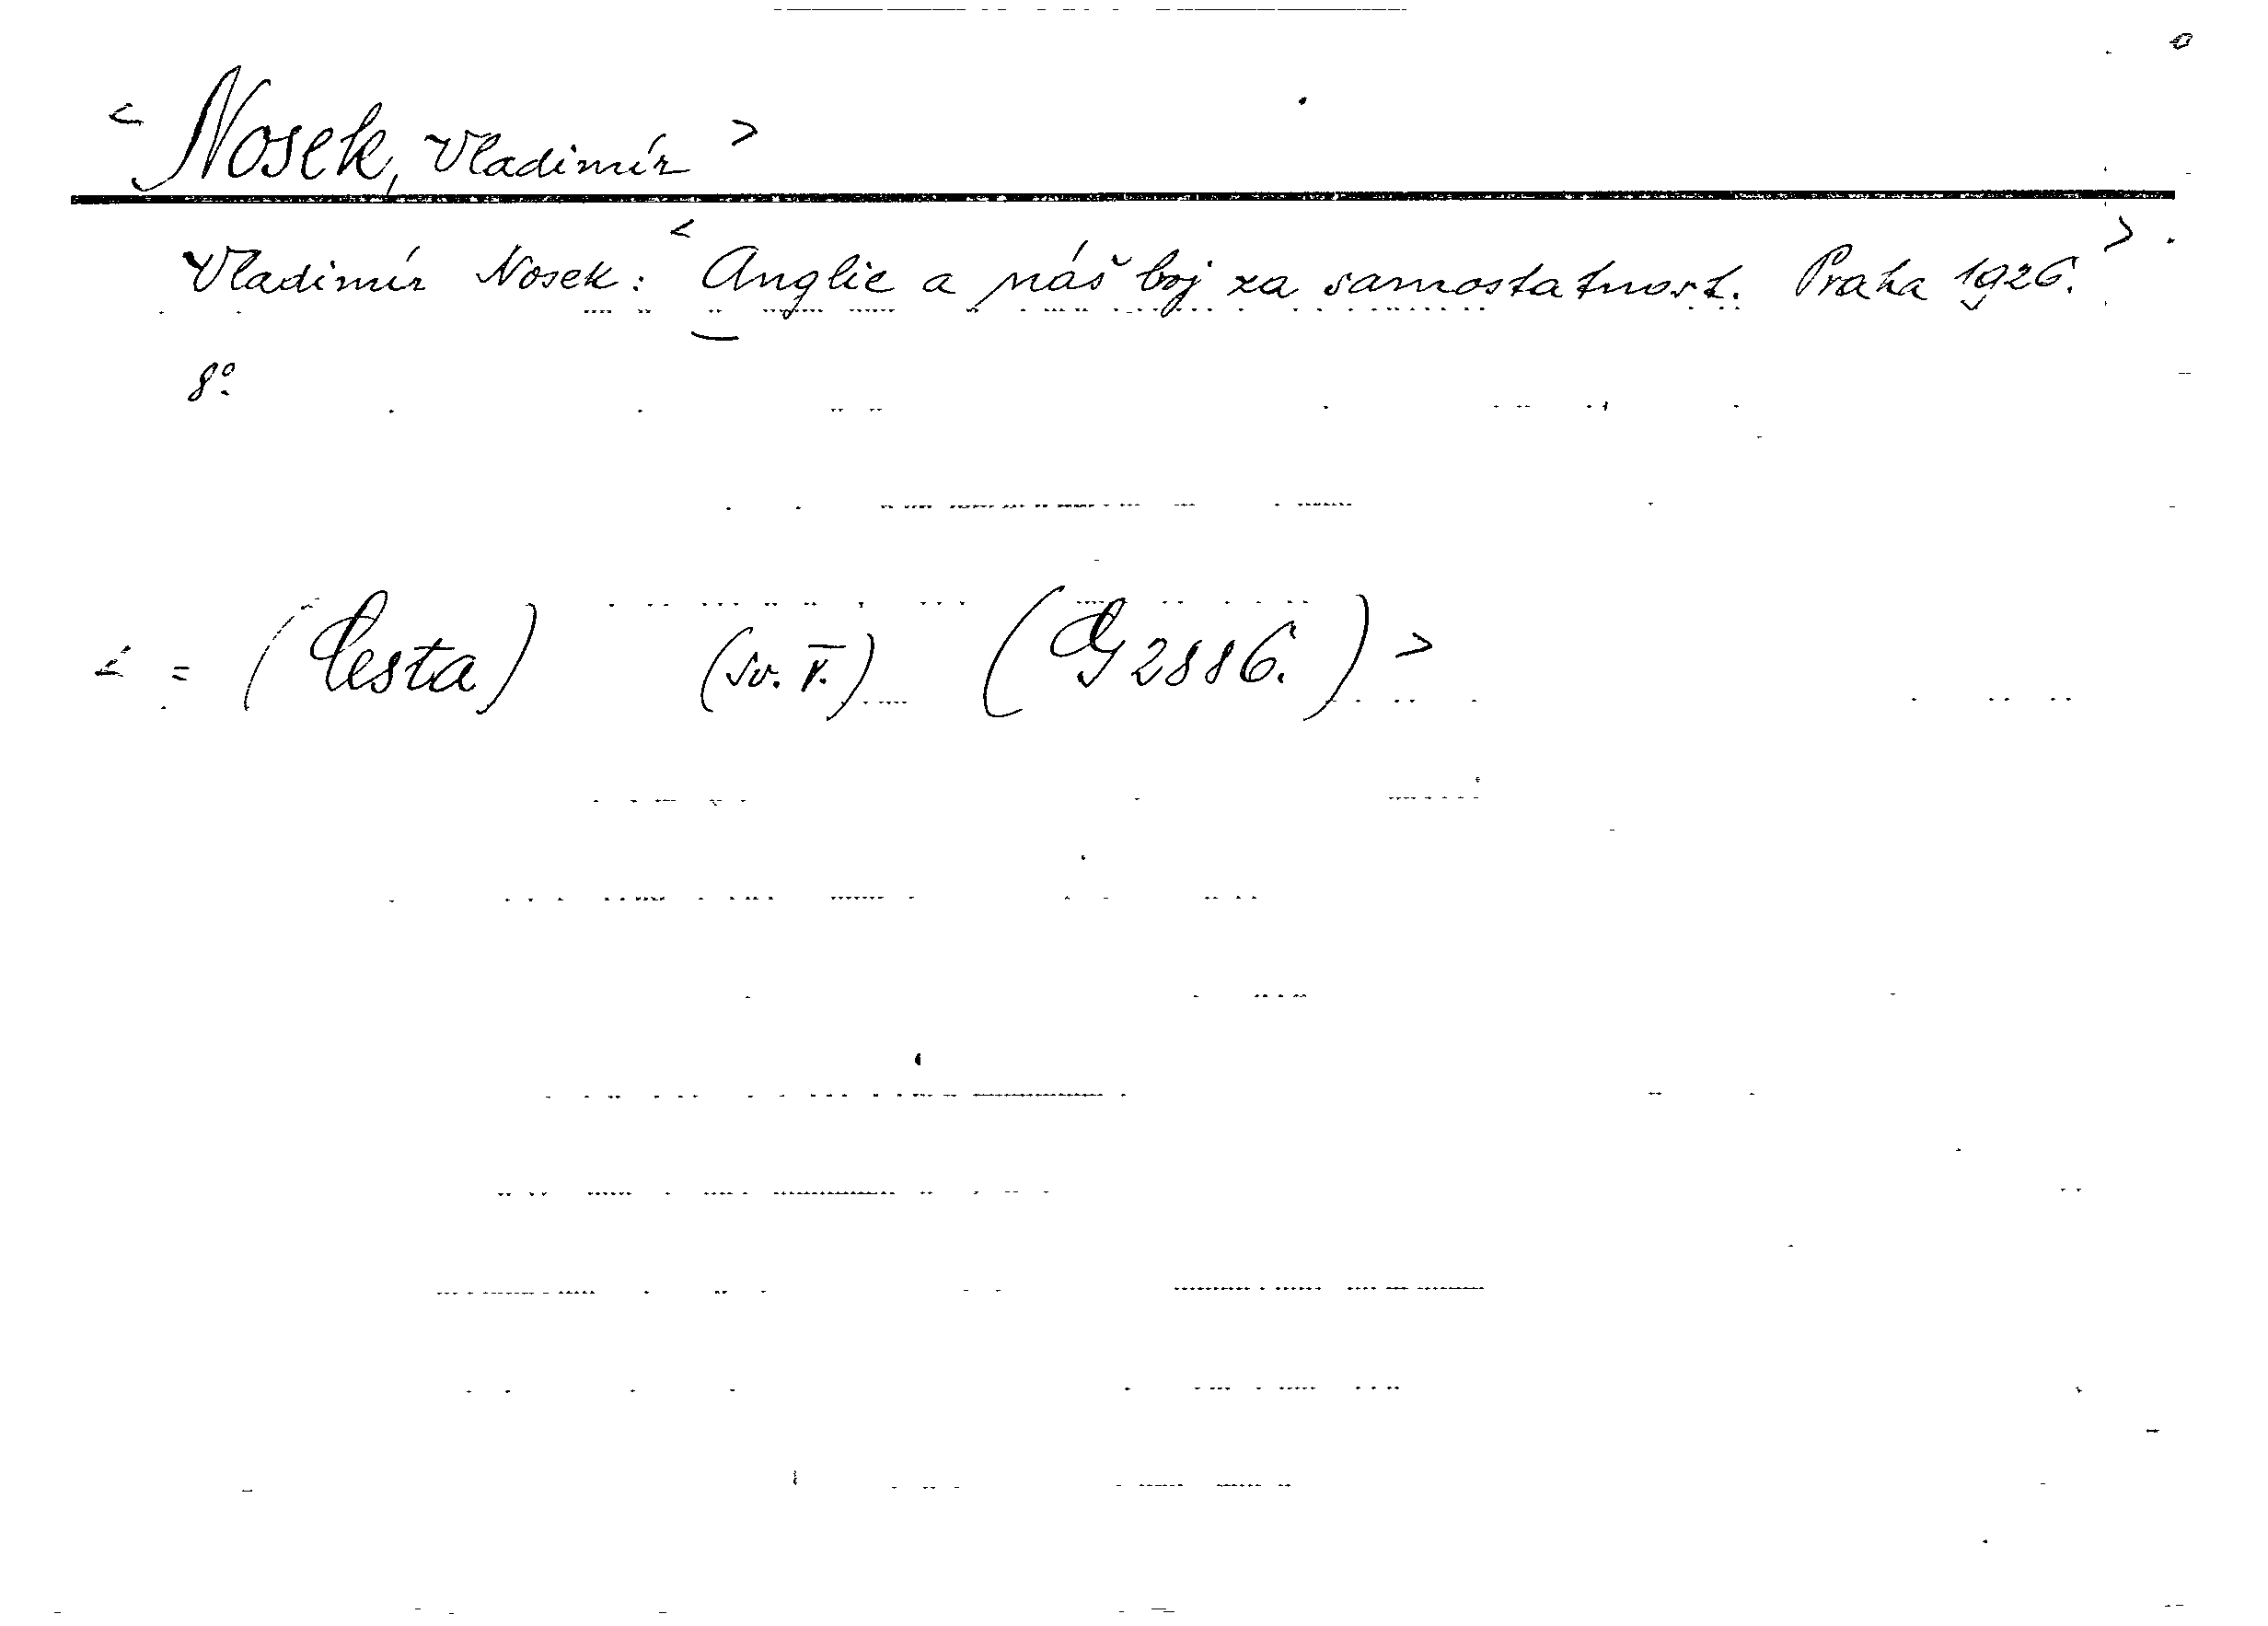 < Nosek, Vladimír >
Vladimír Nosek: < Anglie a náš boj za samostatnost. Praha 1926. >
8°.
< = (Cesta) (Sv. V.) (G 2886.) >